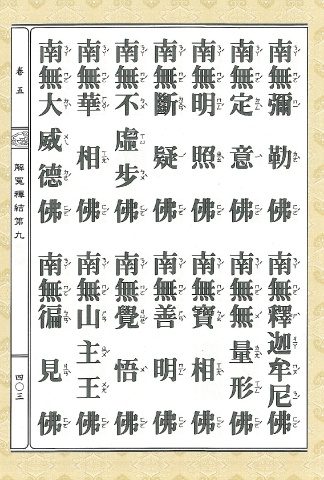 南無彌勒佛
南無釋迦牟尼佛
南無定意佛
南無無量形佛
南無明照佛
南無寶相佛
南無斷疑佛
南無善明佛
南無不虛步佛
南無覺悟佛
南無華相佛
南無山主王佛
南無大威德佛
南無徧見佛
卷五
解冤釋結第九
四〇三